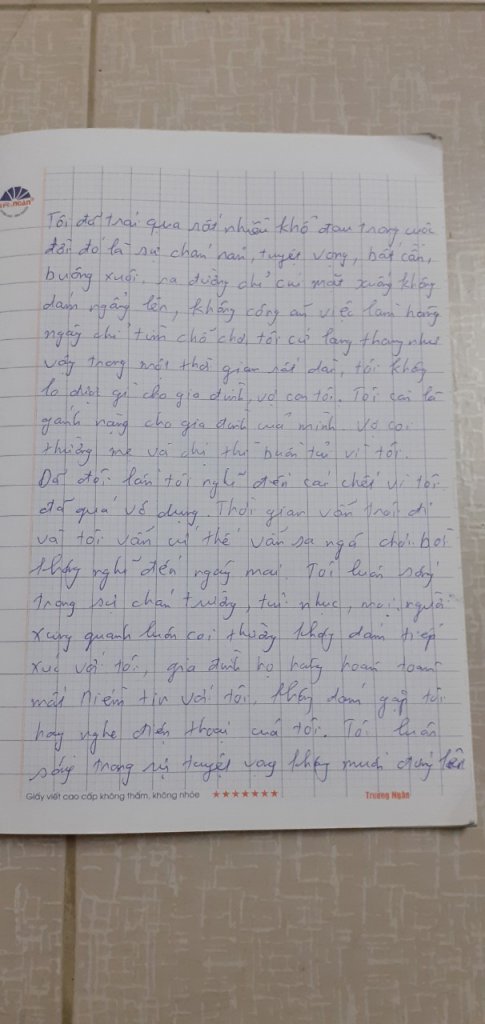 Tôi đã trải qua rất nhiều khổ đau trong cuộc
đời đó là sự chán nản, tuyệt vọng, bất cần,
buông xuôi. ra đường chỉ cúi mặt xuống không
dám ngẩng lên, không công ăn việc làm hằng
ngày chỉ tìm chỗ chơi, tôi cứ lang thang như
vậy trong một thời gian rất dài, tôi không
lo được gì cho gia đình, vợ con tôi. Tôi còn là
gánh nặng cho gia đình của mình. Vợ con
thường mẹ và chị thì buồn tủi vì tôi.
Đã đôi lần tôi nghĩ đến cái chết vì tôi
đã quá vô dụng. Thời gian vẫn trôi đi
và tôi vẫn cứ thế vẫn sa ngã chơi bời
không nghĩ đến ngày mai Tôi luôn sống
trong sự chán trường, tủi nhục, mọi người
xung quanh luôn coi thường không dám tiếp
xúc với tôi, gia đình họ hàng hoàn toàn
mất niềm tin với tôi, không dám gặp tôi
hay nghe điện thoại của tôi. Tôi luôn
sống trong sự tuyệt vọng không muốn đứng lên
Giấy viết cao cấp không thấm, không nhòe
Trương Ngân